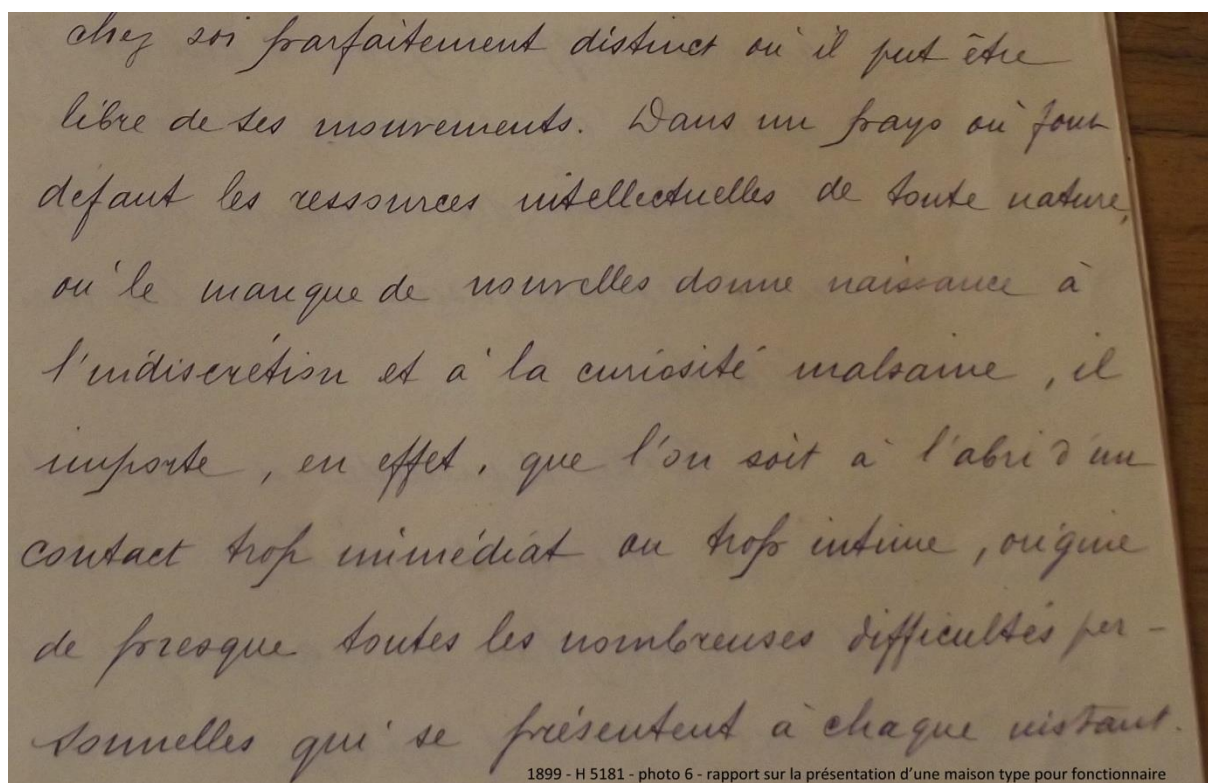 chez soi parfaitement distinct où il put être
libre de ses mouvements. Dans un pays où font
défaut les ressources intellectuelles de toute nature,
où le manque de nouvelles donne naissance à
l'indiscrétion et à la curiosité malsaine, il
importe, en effet, que l'on soit à l'abri d'un
contact trop immédiat ou trop intime, origine
de presque toutes les nombreuses difficultés per-
sonnelles qui se présentent à chaque instant.
1899 - H 5181 - photo 6 - rapport sur la présentation d'une maison type pour fonctionnaire